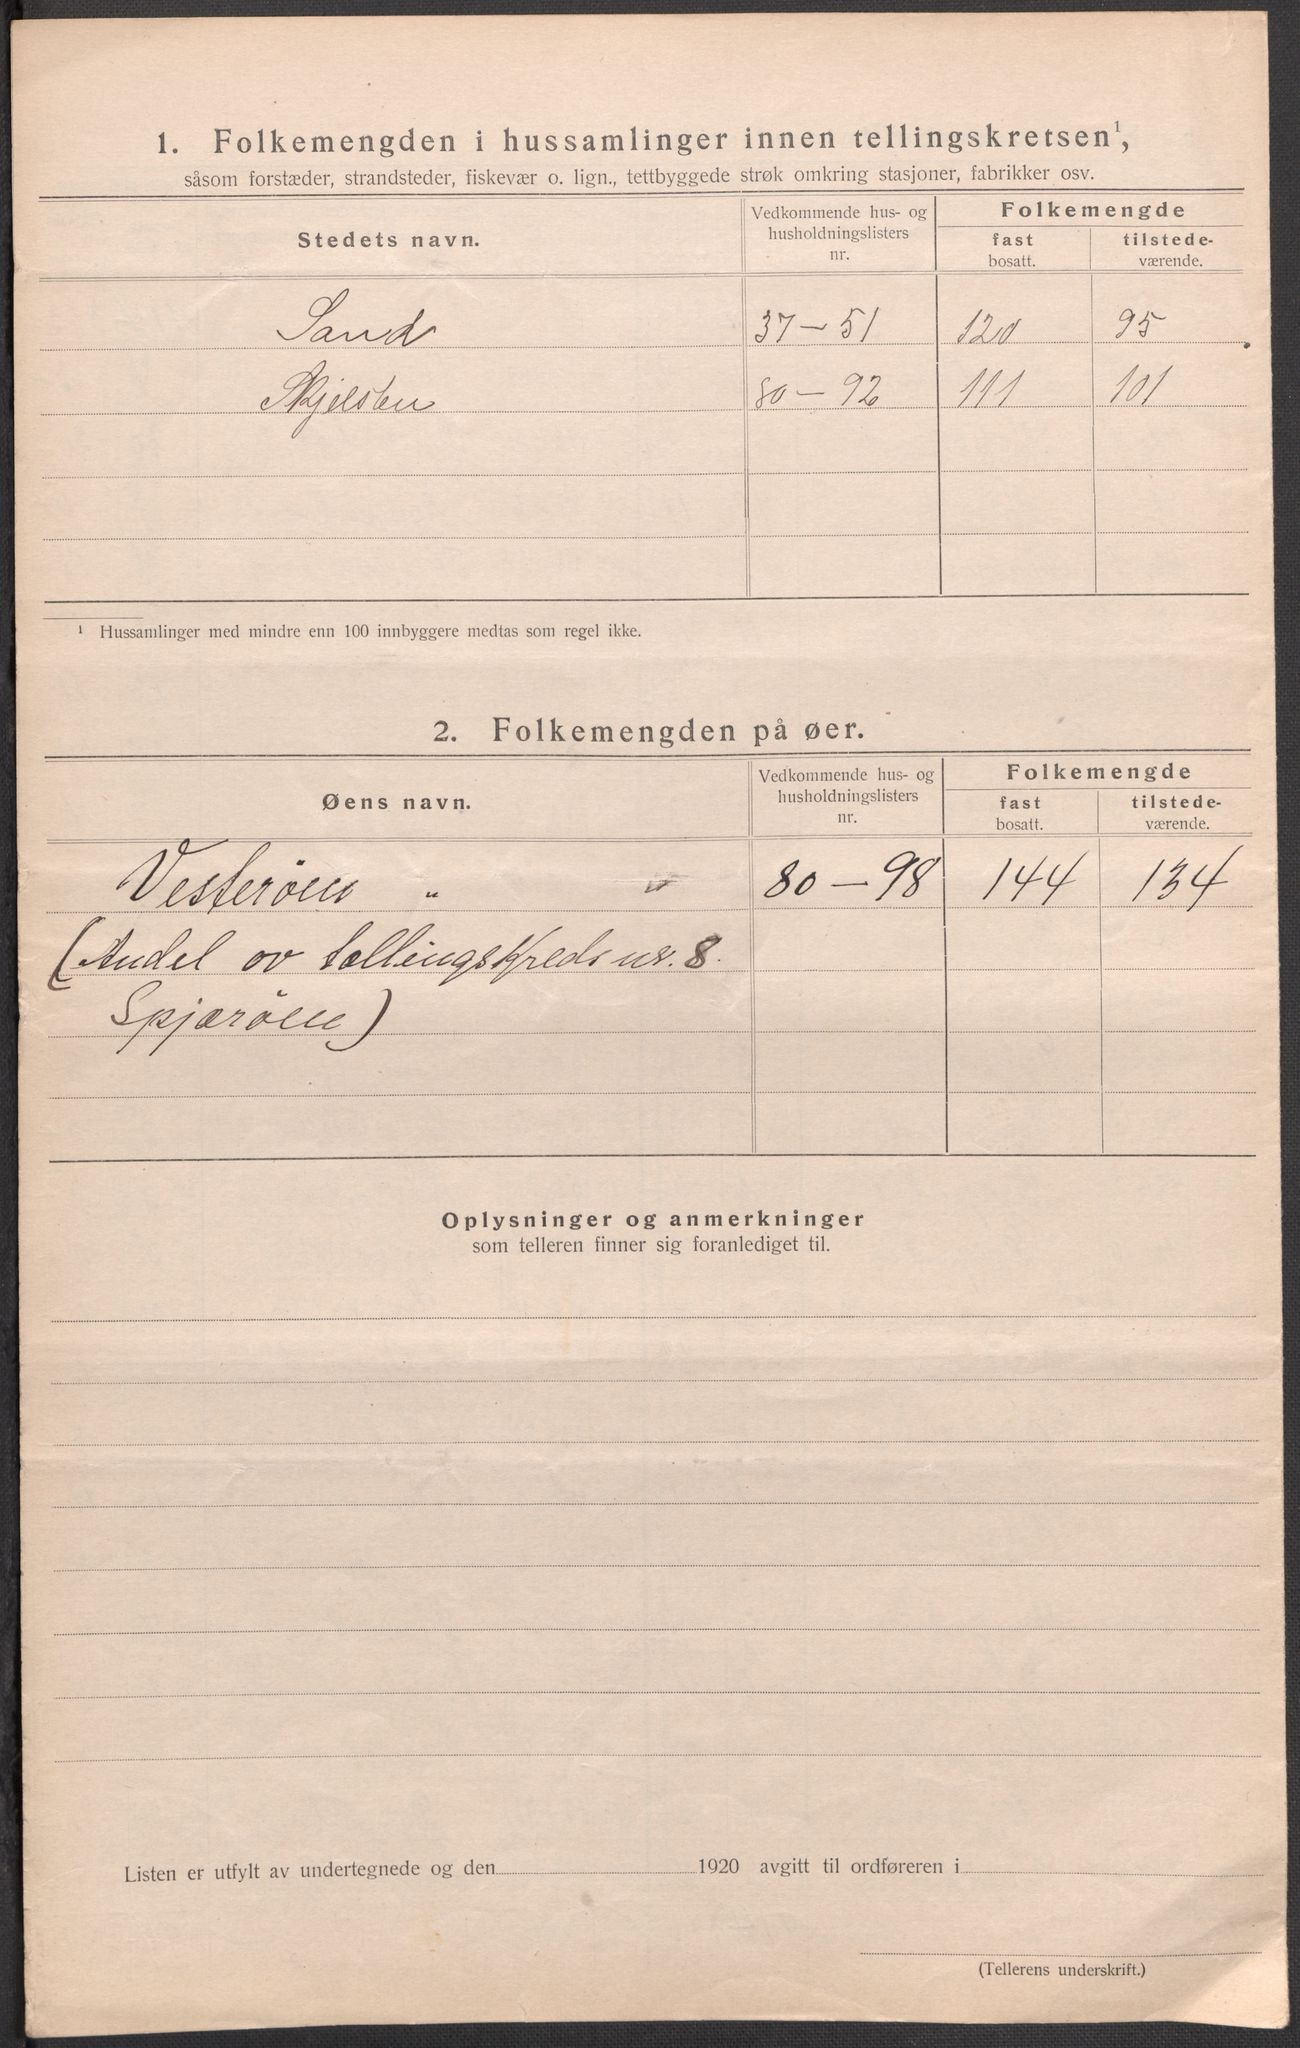 1. Folkemengden i hussamlinger innen tellingskretsen¹,
såsom forstæder, strandsteder, fiskevær o. lign., tettbyggede strøk omkring stasjoner, fabrikker osv.
Stedets navn.
Vedkommende hus- og
husholdningslisters
nr.
Folkemengde
fast
bosatt.
tilstede-
værende.
Sand 37 — 51 120 95
Skjelsten 80 — 92 111 101
¹ Hussamlinger med mindre enn 100 innbyggere medtas som regel ikke.
2. Folkemengden på øer.
Øens navn.
Vedkommende hus- og
husholdningslisters
nr.
Folkemengde
fast
bosatt.
tilstede-
værende.
Vesteröen „ 80 — 98 144 134
(Andel av tællingskreds nr. 8.
Spjæröen)
Oplysninger og anmerkninger
som telleren finner sig foranlediget til.
Listen er utfylt av undertegnede og den 1920 avgitt til ordføreren i
(Tellerens underskrift.)